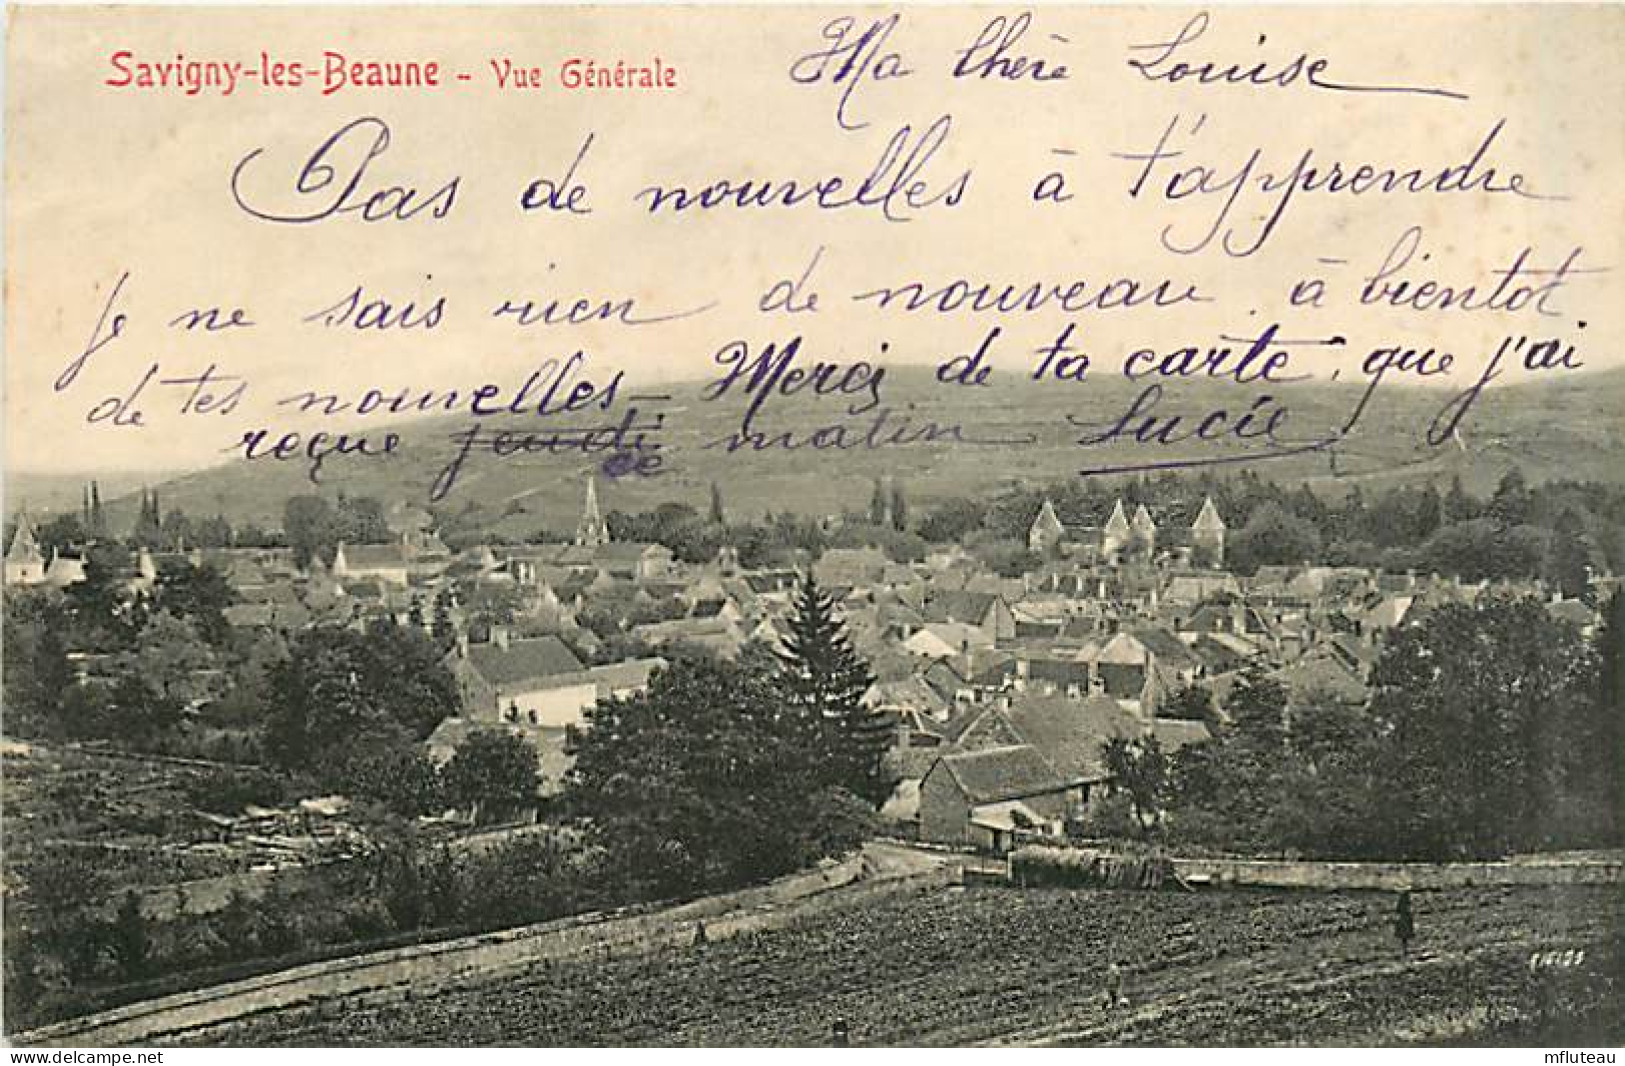 Savigny-les-Beaune - Vue Générale
Ma Chère Louise
Pas de nouvelles à t'apprendre
Je ne sais rien de nouveau. à bientot
de tes nouvelles - Merci de ta carte, que j'ai
reçue jeudi matin Lucie
ce
delcampe.net mfluteau